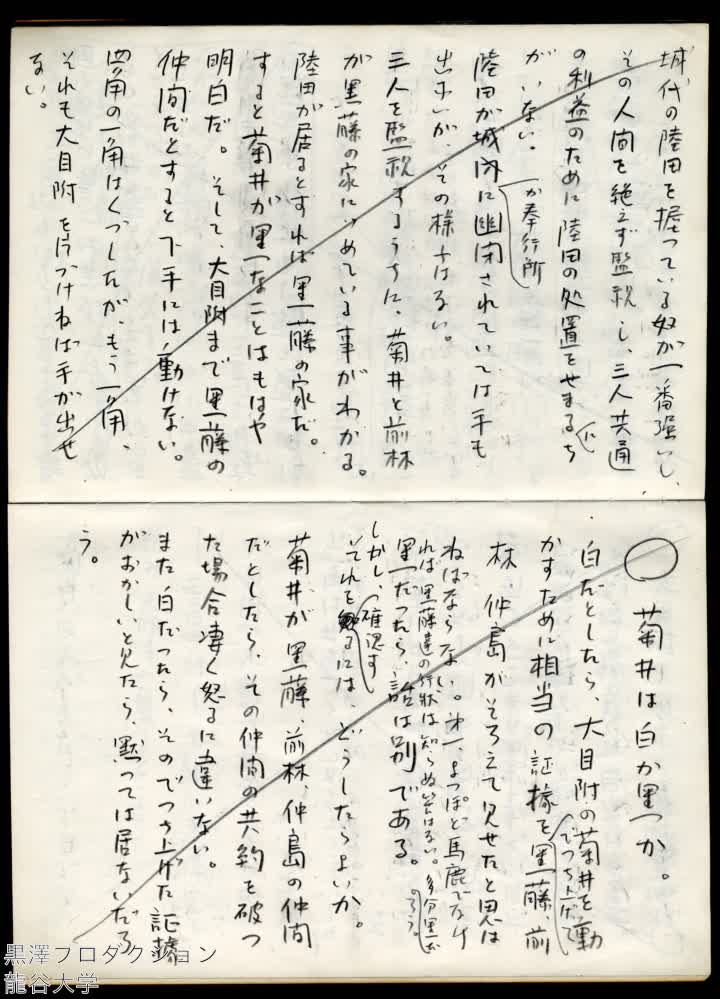 城代の陸田を握っている奴が一番強いし、
その人間を絶えず監視し、三人共通
の利益のために陸田の処置をせまるに
ち
がいない。
が奉行所
陸田が城内に幽閉されていては手も
出ないが、その様子はない。
三人を監視するうちに、菊井と前林
が黒藤の家につめている事がわかる。
陸田が居るとすれば黒藤の家だ。
すると菊井が黒なことはもはや
明白だ。そして、大目附まで黒藤の
仲間だとすると下手には動けない。
四角の一角はくづしたが、もう一角、
それも大目附を片づけねば手が出せ
ない。
○ 菊井は白か黒か。
白だとしたら、大目附の菊井を動
かすために相当の証拠を黒藤、前
でっち上げて
林、仲島がそろえて見せたと思は
ねばならない。第一、よっぽど馬鹿でなけ
れば黒藤達の行状は知らぬ筈はない。多分黒だ
ろう。
黒だったら、話は別である。
しかし、確認す
それを るには、どうしたらよいか。
菊井が黒藤、前林、仲島の仲間
だとしたら、その仲間の共約を破っ
た場合凄く怒るに違いない。
また白だったら、そのでっち上げた証拠
がおかしいと見たら、黙っては居ないだろ
う。
黒澤プロダクション
龍谷大学